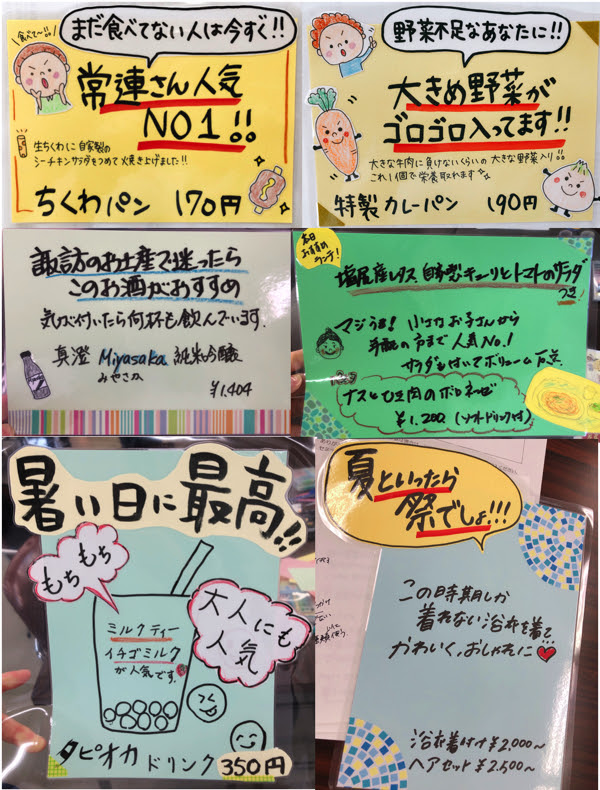 食べて〜!!
まだ食べてない人は今すぐ!!
常連さん人気
NO1!!
生ちくわに自家製の
シーチキンサラダをつめて焼き上げました!!
ちくわパン 170円
野菜不足なあなたに!!
大きめ野菜が
ゴロゴロ入ってます!!
大きな牛肉に負けないくらいの大きな野菜入り!!
これ1個で栄養取れます
特製カレーパン 190円
諏訪のお土産で迷ったら
このお酒がおすすめ
気が付いたら何杯も飲んでいます.
真澄 Miyasaka 純米吟醸
みやさか
¥1,404
本日
おすすめ
ランチ!
塩尻産レタス 自家製キューリとトマトのサラダ
つき!
マジうま! 小さなお子さんから
年配の方まで人気No.1
サラダも付いてボリューム万点
ナスとひき肉のボロネーゼ
¥1,200 (ソフトドリンク付)
暑い日に最高!!
もちもち
もちもち
大人にも
人気
ミルクティー
イチゴミルク
が人気です!
タピオカドリンク 350円
夏といったら
祭でしょ!!!
この時期しか
着れない浴衣を着て
かわいく、おしゃれに
浴衣着付け¥2,000〜
ヘアセット¥2,500〜